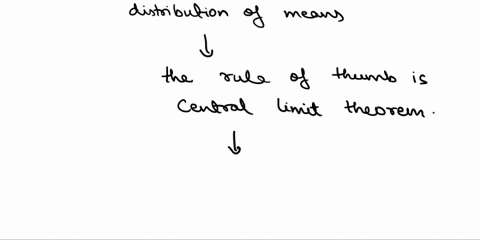 distribution of means
↓
the rule of thumb is
Central limit theorem.
↓